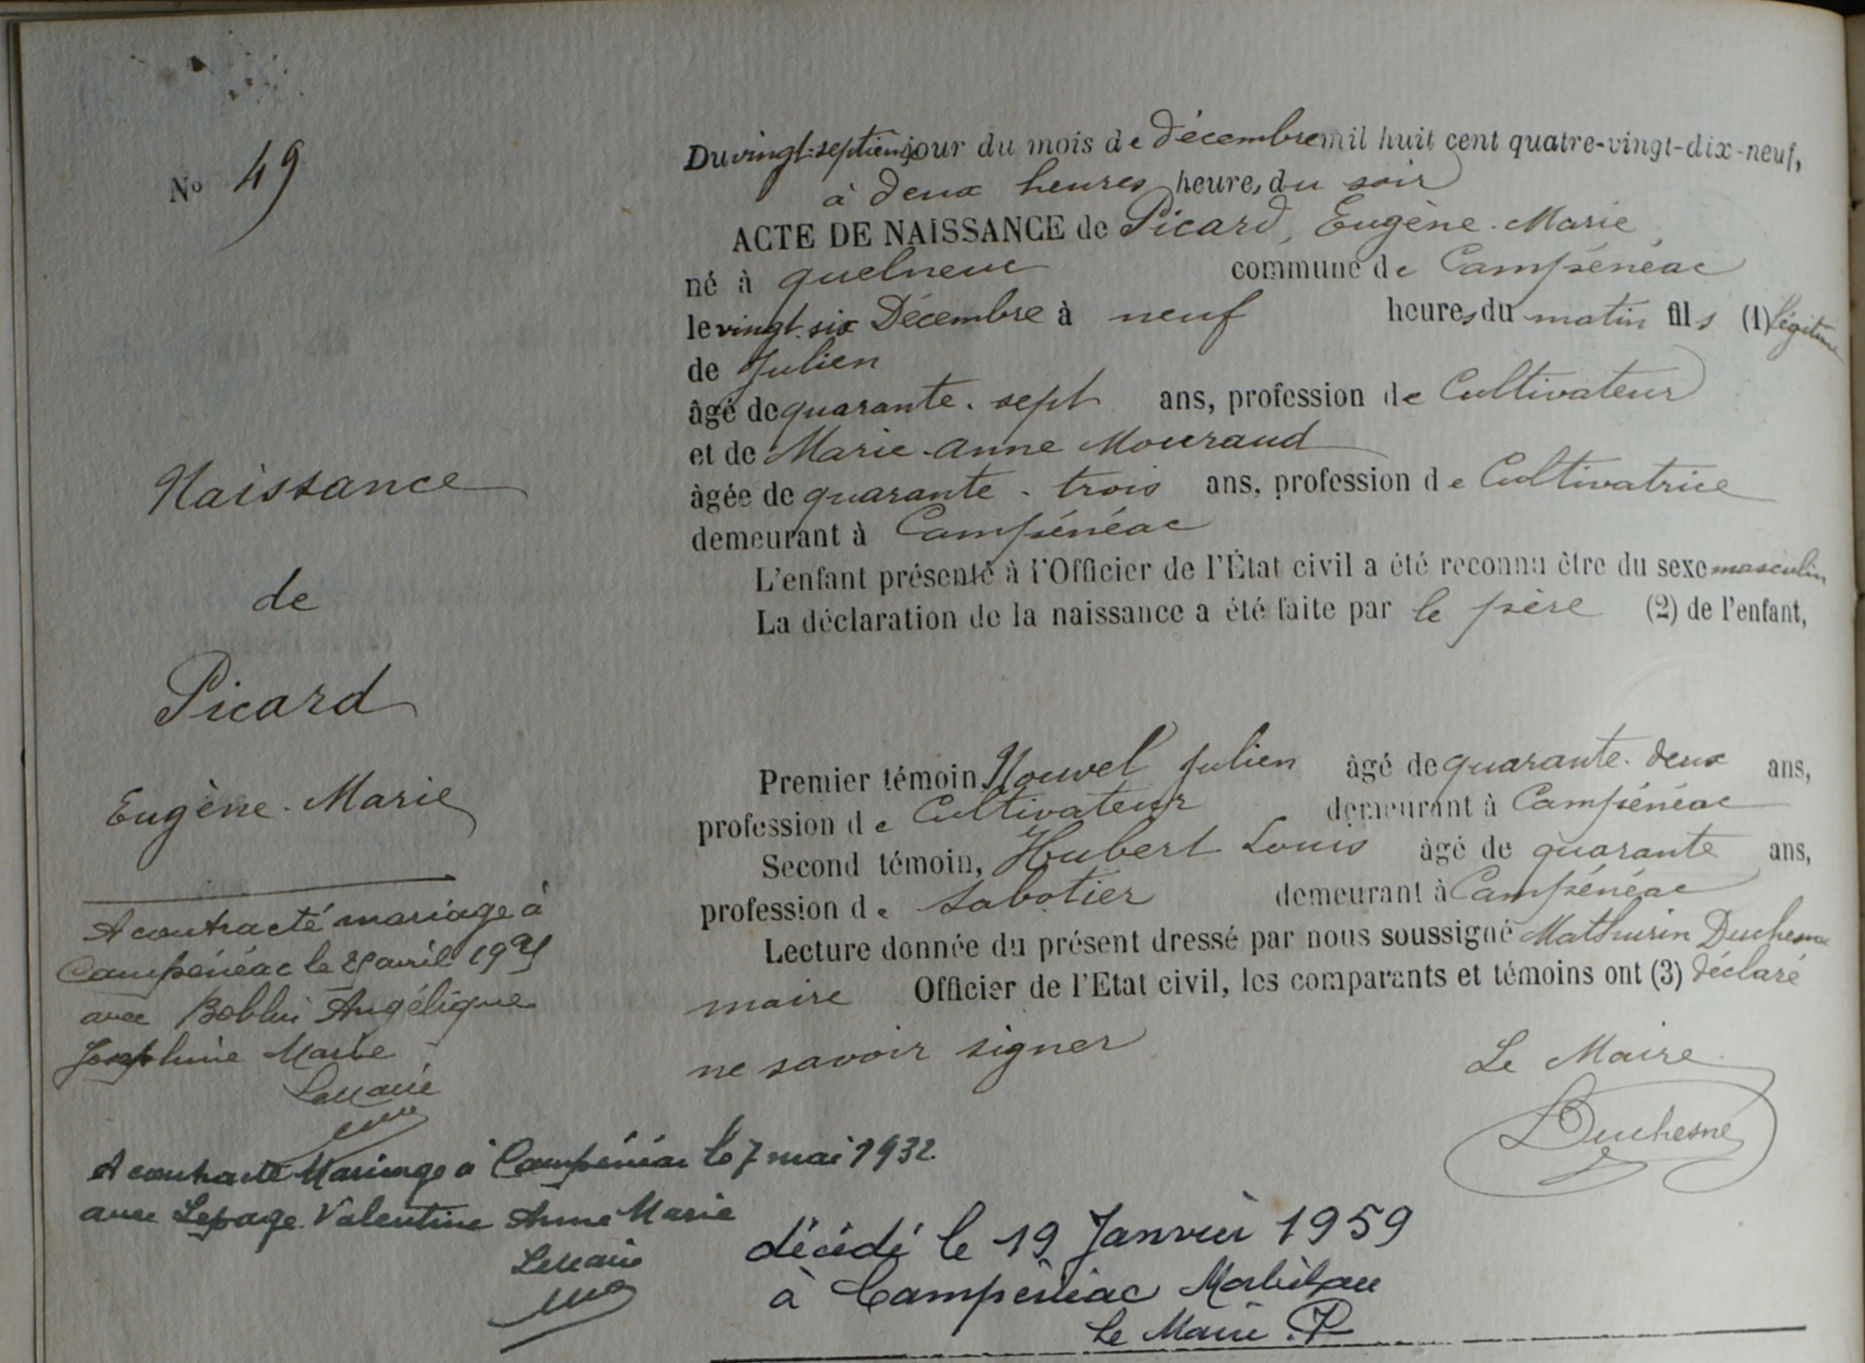 N° 49
Naissance
de
Picard
Eugène-Marie
A contracté mariage à
Campénéac le avril
avec Boblin Angélique
Joséphine Marie
Le Maire
A contracté Mariage à Campénéac le 7 mai 1932
avec Lepage Valentine Anne Marie
Le Maire
Du vingt-septième jour du mois de Décembre mil huit cent quatre-vingt-dix-neuf,
à deux heures heures du soir
ACTE DE NAISSANCE de Picard, Eugène-Marie,
né à quelneuc commune de Campénéac
le vingt-six Décembre à neuf heures du matin fils (1) légitime
de Julien
âgé de quarante-sept ans, profession de Cultivateur
et de Marie-Anne Mouraud
âgée de quarante-trois ans, profession de Cultivatrice
demeurant à Campénéac
L'enfant présenté à l'Officier de l'État civil a été reconnu être du sexe masculin
La déclaration de la naissance a été faite par le père (2) de l'enfant,
Premier témoin, Nouvel Julien âgé de quarante-deux ans,
profession de Cultivateur demeurant à Campénéac
Second témoin, Hubert Louis âgé de quarante ans,
profession de Sabotier demeurant à Campénéac
Lecture donnée du présent dressé par nous soussigné Mathurin Duchesne
maire Officier de l'Etat civil, les comparants et témoins ont (3) déclaré
ne savoir signer
Le Maire
Duchesne
décédé le 19 Janvier 1959
à Campénéac Morbihan
Le Maire